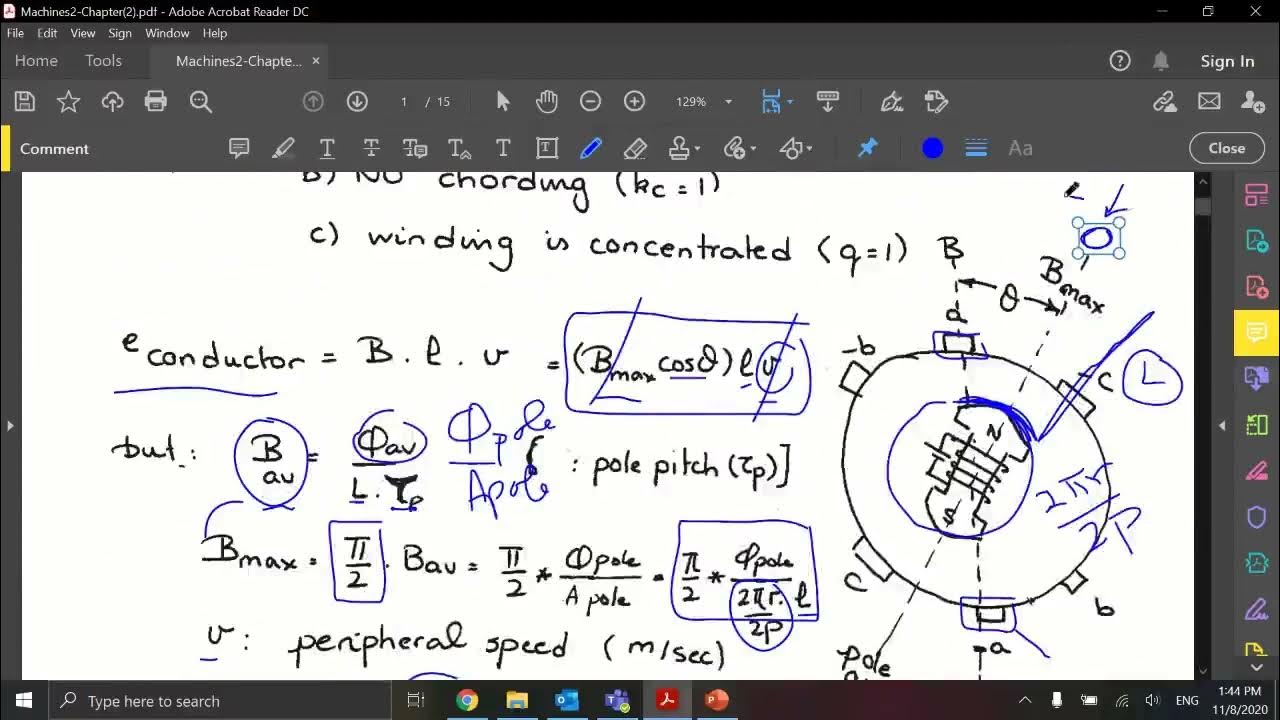 Machines2-Chapter(2).pdf - Adobe Acrobat Reader DC
File Edit View Sign Window Help
Home Tools Machines2-Chapte... × Sign In
1 / 15 129%
Comment T T T Aa Close
b) No chording (kc = 1)
c) winding is concentrated (q = 1)
B
θ
Bmax
a
-b
-c
L
e conductor = B . l . v = (Bmax cosθ) l v
but : Bav = Φav / L . τp Φpole / Apole : pole pitch (τp)]
N
S
2πr / 2P
Bmax = π/2 . Bav = π/2 * Φpole / A pole = π/2 * Φpole / 2πr/2P . l
c
b
v : peripheral speed (m/sec)
-a
pole
Type here to search
ENG
1:44 PM
11/8/2020